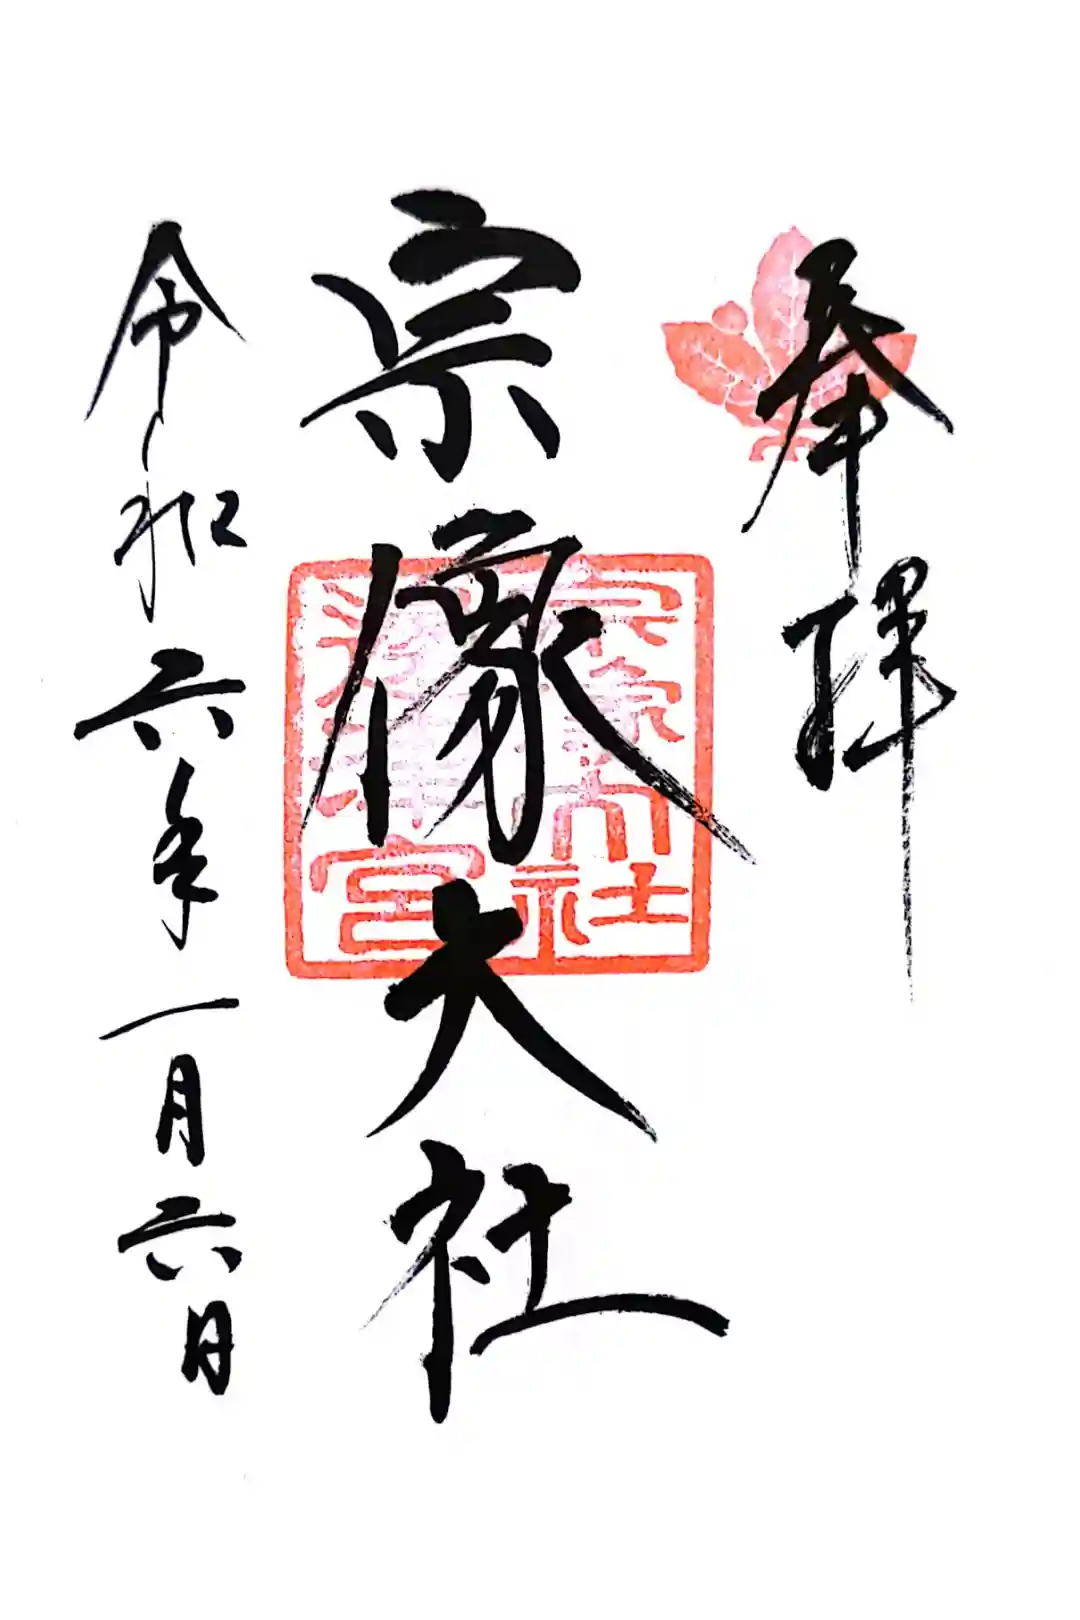 奉拝
宗像大社
宗像大社
邉津宮
令和六年一月六日